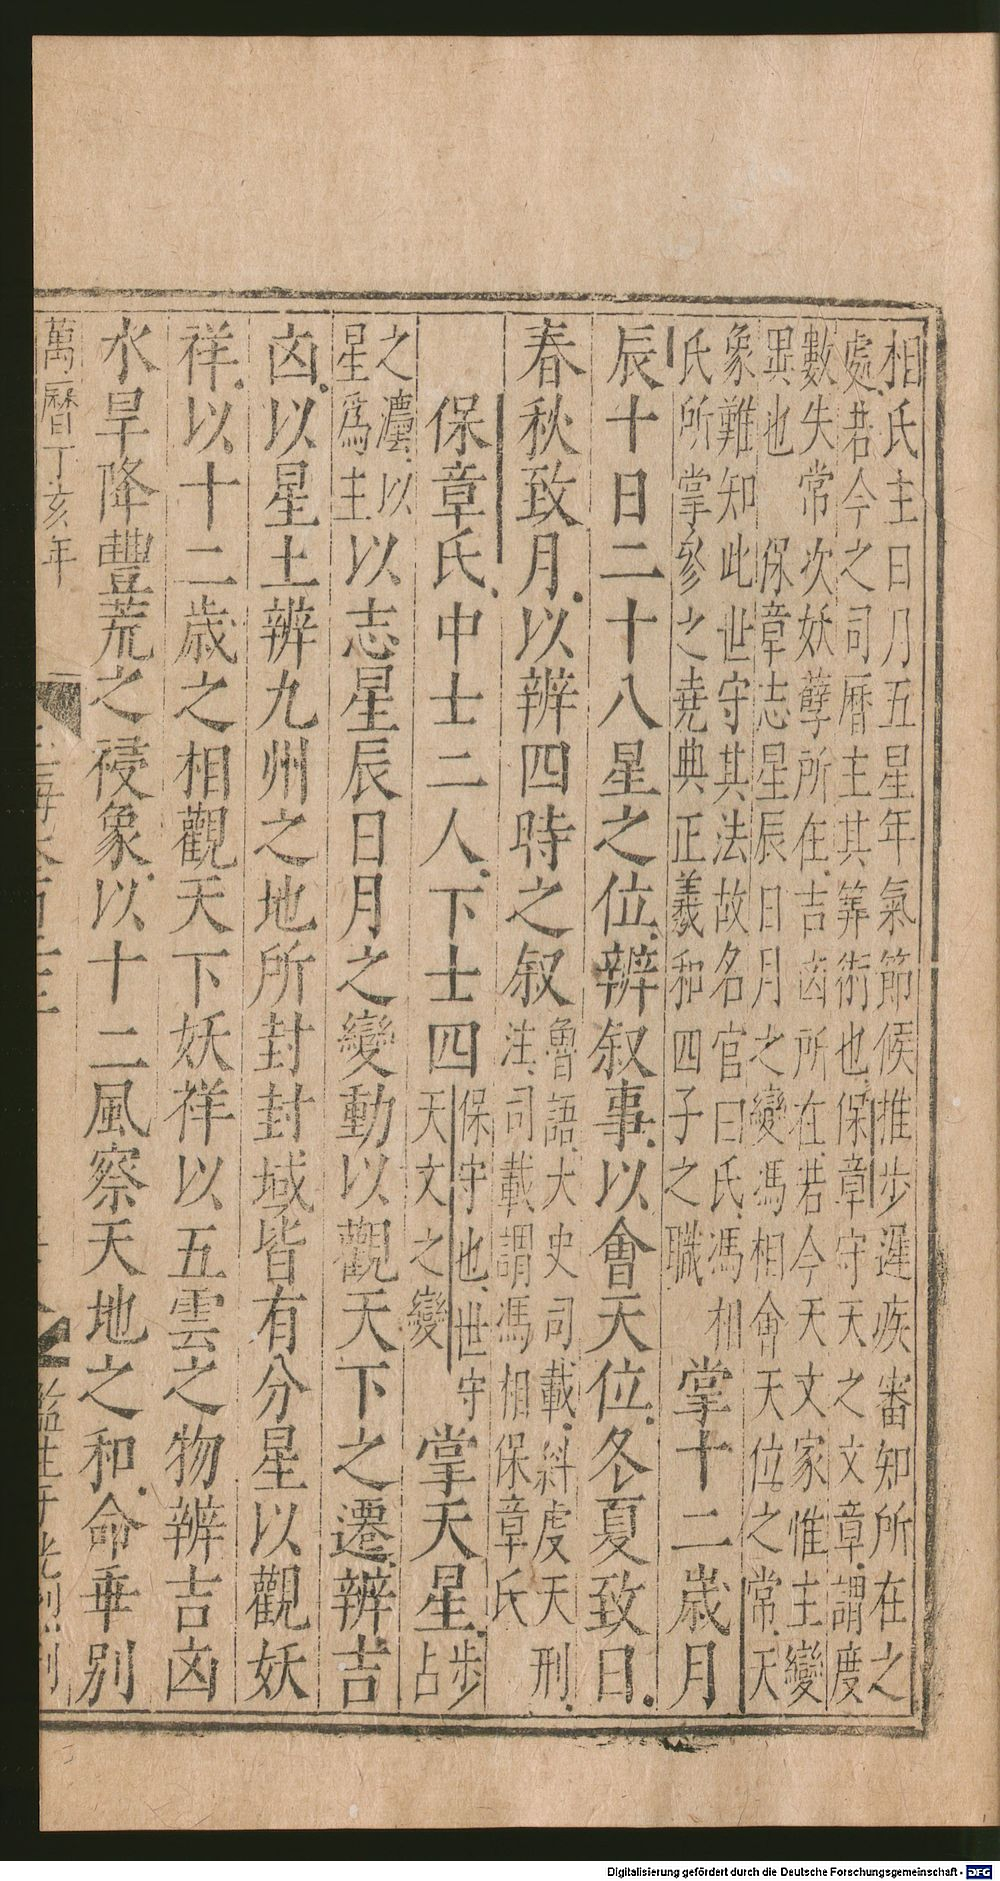 相氏主日月五星年氣節候推步遲疾審知所在之
處若今之司曆主其筭術也保章守天之文章謂度
數失常次妖孽所在吉凶所在若今天文家惟主變
異也　保章志星辰日月之變馮相會天位之常天
象難知此世守其法故名官曰氏馮相
氏所掌參之堯典正羲和四子之職
掌十二歲月
辰十日二十八星之位辨叙事以會天位冬夏致日
春秋致月以辨四時之叙
魯語大史司載糾虔天刑
注司載謂馮相保章氏
保章氏中士二人下士四
保守也世守
天文之變
掌天星
步
占
之灋以
星爲主
以志星辰日月之變動以觀天下之遷辨吉
凶以星土辨九州之地所封封域皆有分星以觀妖
祥以十二歲之相觀天下妖祥以五雲之物辨吉凶
水旱降豐荒之祲象以十二風察天地之和命乖別
萬曆丁亥年